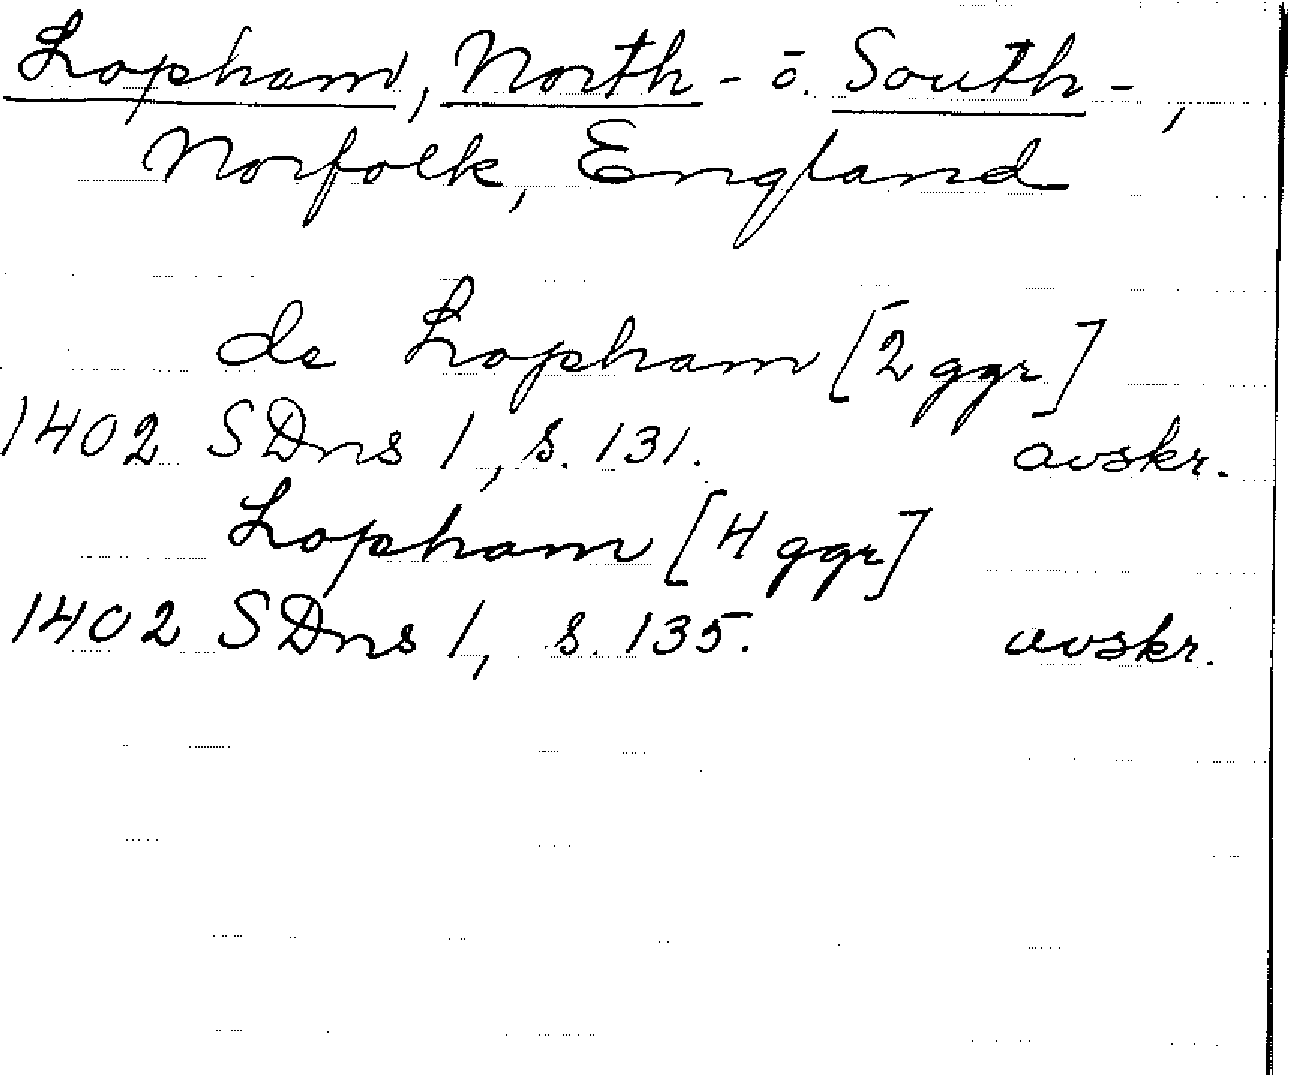 Lopham, North - o. South -,
Norfolk, England
de Lopham [2 ggr]
1402 SDns 1, s. 131. avskr.
Lopham [4 ggr]
1402 SDns 1, s. 135. avskr.